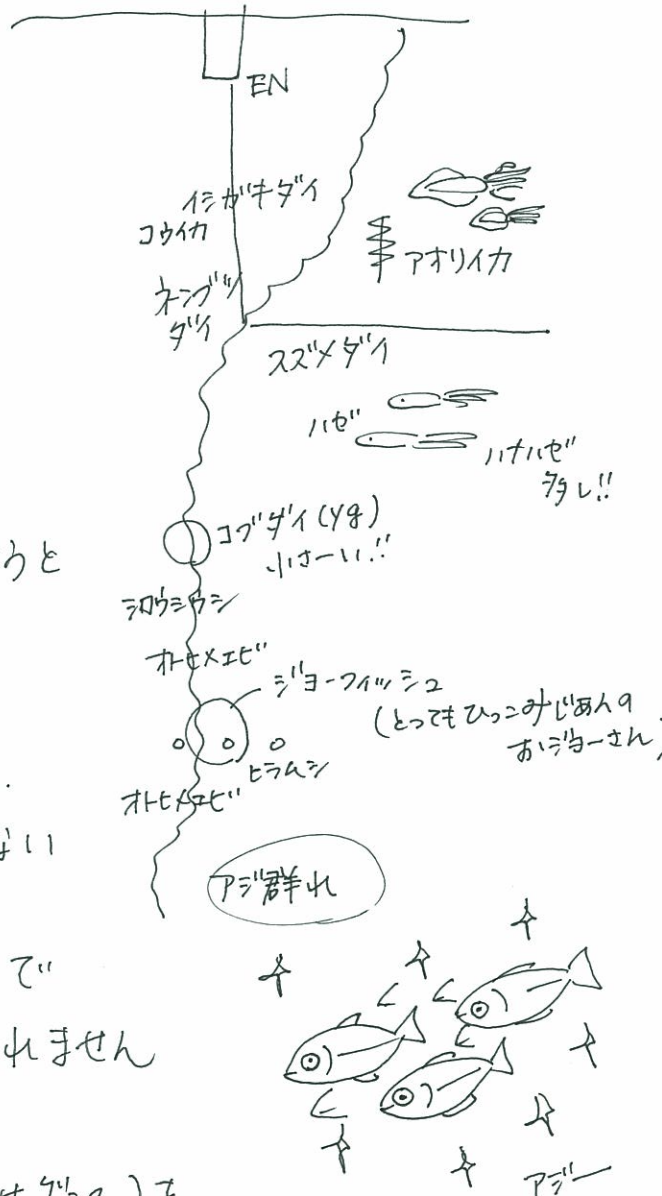 EN
イシガキダイ
コウイカ
アオリイカ
ネンブツ
ダイ
スズメダイ
ハゼ
ハナハゼ
多し!!
コブダイ(yg)
小さーい!!
うと
シロウミウシ
オトヒメエビ
ジョーフィッシュ
(とってもひっこみじあんの
おジョーさん)
ヒラムシ
オトヒメエビ
ない
アジ群れ
で
れません
アジー